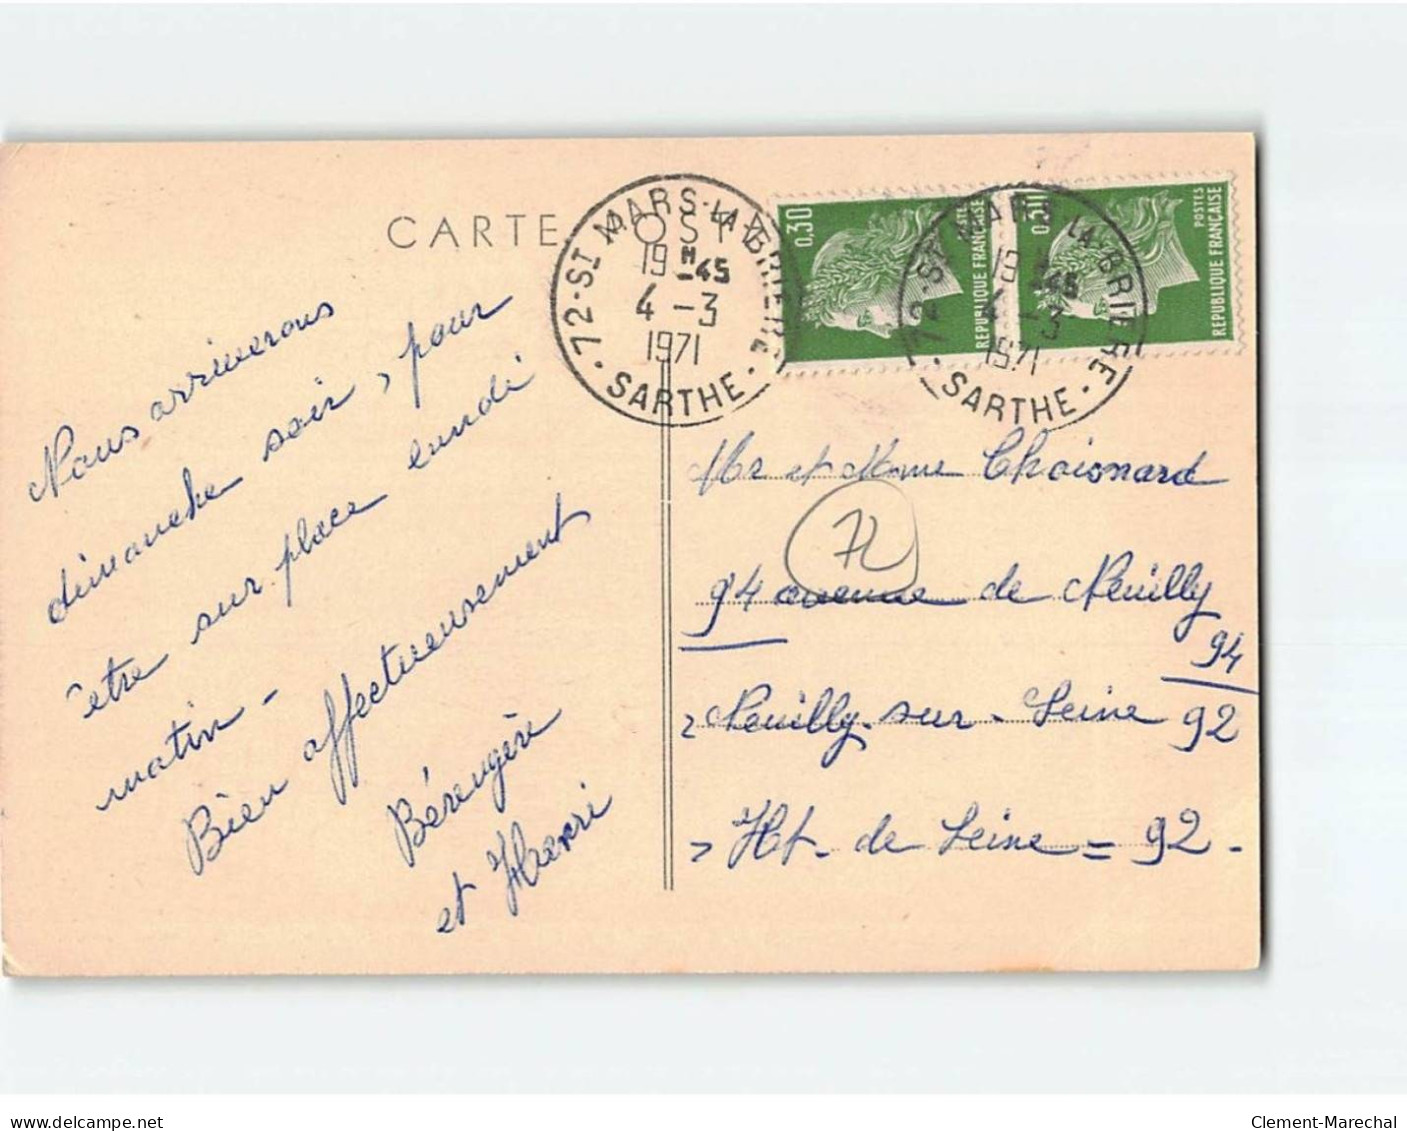 CARTE POSTALE
72-ST MARS-LA-BRIERE
19H-45
4-3
1971
SARTHE
0,30
POSTES
REPUBLIQUE FRANÇAISE
72-ST MARS-LA-BRIERE
19H-45
4-3
1971
SARTHE
0,30
POSTES
REPUBLIQUE FRANÇAISE
Nous arriverons
dimanche soir, pour
être sur place lundi
matin -
Bien affectueusement
Bérengère
et Henri
Mr et Mme Choisnard
72
94 avenue de Neuilly
94
Neuilly-sur-Seine 92
Ht-de Seine = 92-
www.delcampe.net
Clement-Marechal